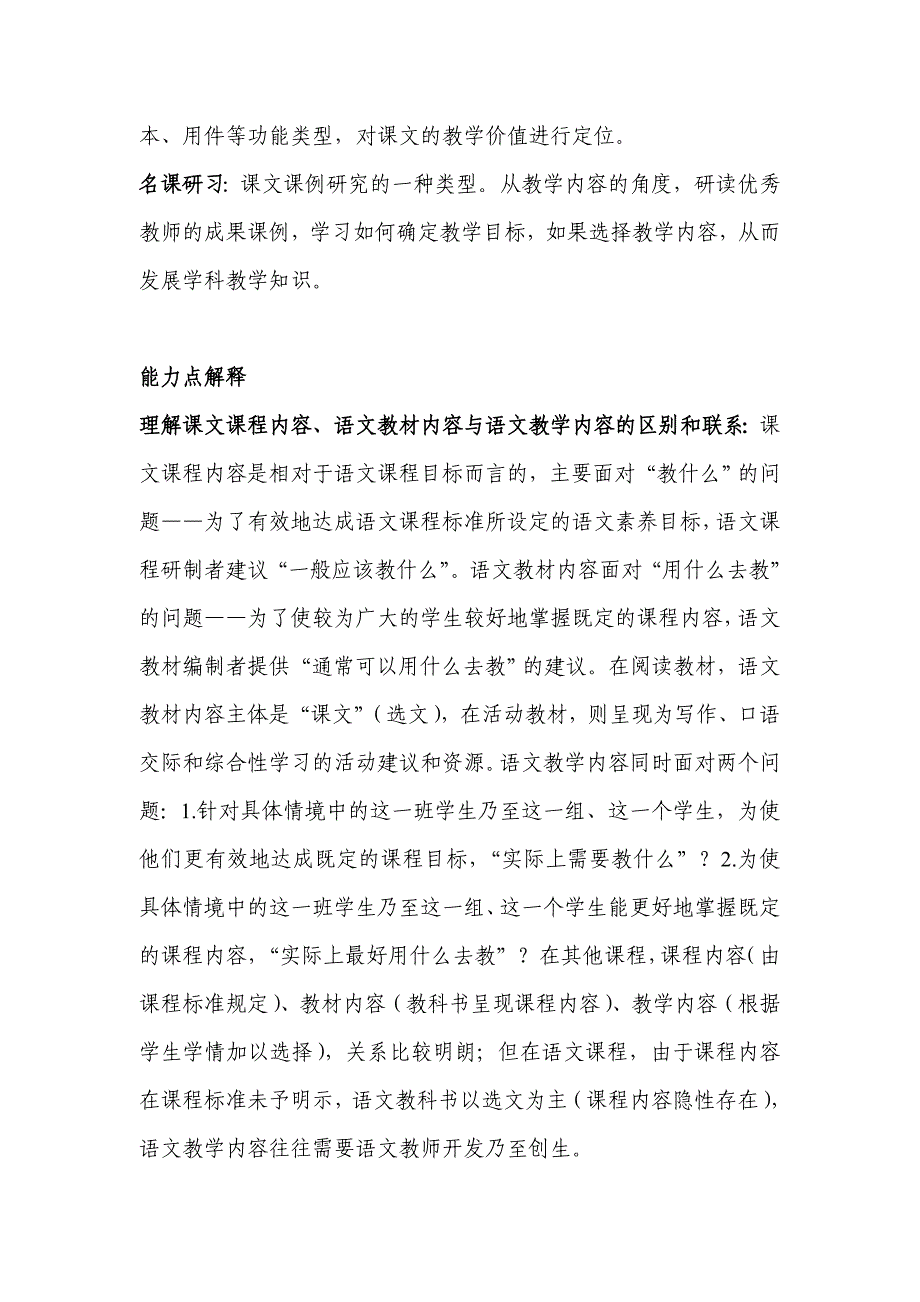 本、用件等功能类型，对课文的教学价值进行定位。
名课研习：课文课例研究的一种类型。从教学内容的角度，研读优秀
教师的成果课例，学习如何确定教学目标，如果选择教学内容，从而
发展学科教学知识。
能力点解释
理解课文课程内容、语文教材内容与语文教学内容的区别和联系：课
文课程内容是相对于语文课程目标而言的，主要面对“教什么”的问
题——为了有效地达成语文课程标准所设定的语文素养目标，语文课
程研制者建议“一般应该教什么”。语文教材内容面对“用什么去教”
的问题——为了使较为广大的学生较好地掌握既定的课程内容，语文
教材编制者提供“通常可以用什么去教”的建议。在阅读教材，语文
教材内容主体是“课文”（选文），在活动教材，则呈现为写作、口语
交际和综合性学习的活动建议和资源。语文教学内容同时面对两个问
题：1.针对具体情境中的这一班学生乃至这一组、这一个学生，为使
他们更有效地达成既定的课程目标，“实际上需要教什么”？2.为使
具体情境中的这一班学生乃至这一组、这一个学生能更好地掌握既定
的课程内容，“实际上最好用什么去教”？在其他课程，课程内容（由
课程标准规定）、教材内容（教科书呈现课程内容）、教学内容（根据
学生学情加以选择），关系比较明朗；但在语文课程，由于课程内容
在课程标准未予明示，语文教科书以选文为主（课程内容隐性存在），
语文教学内容往往需要语文教师开发乃至创生。